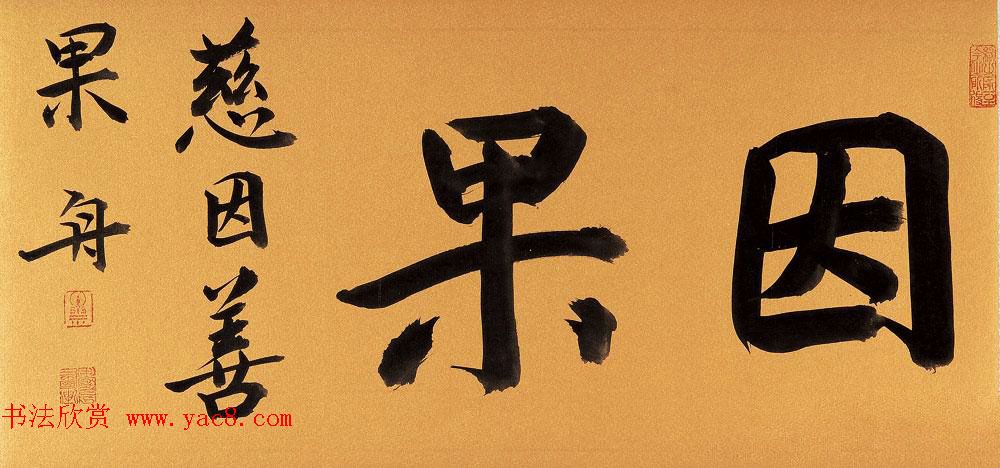 因果
慈因善
果
舟
书法欣赏 www.yac8.com